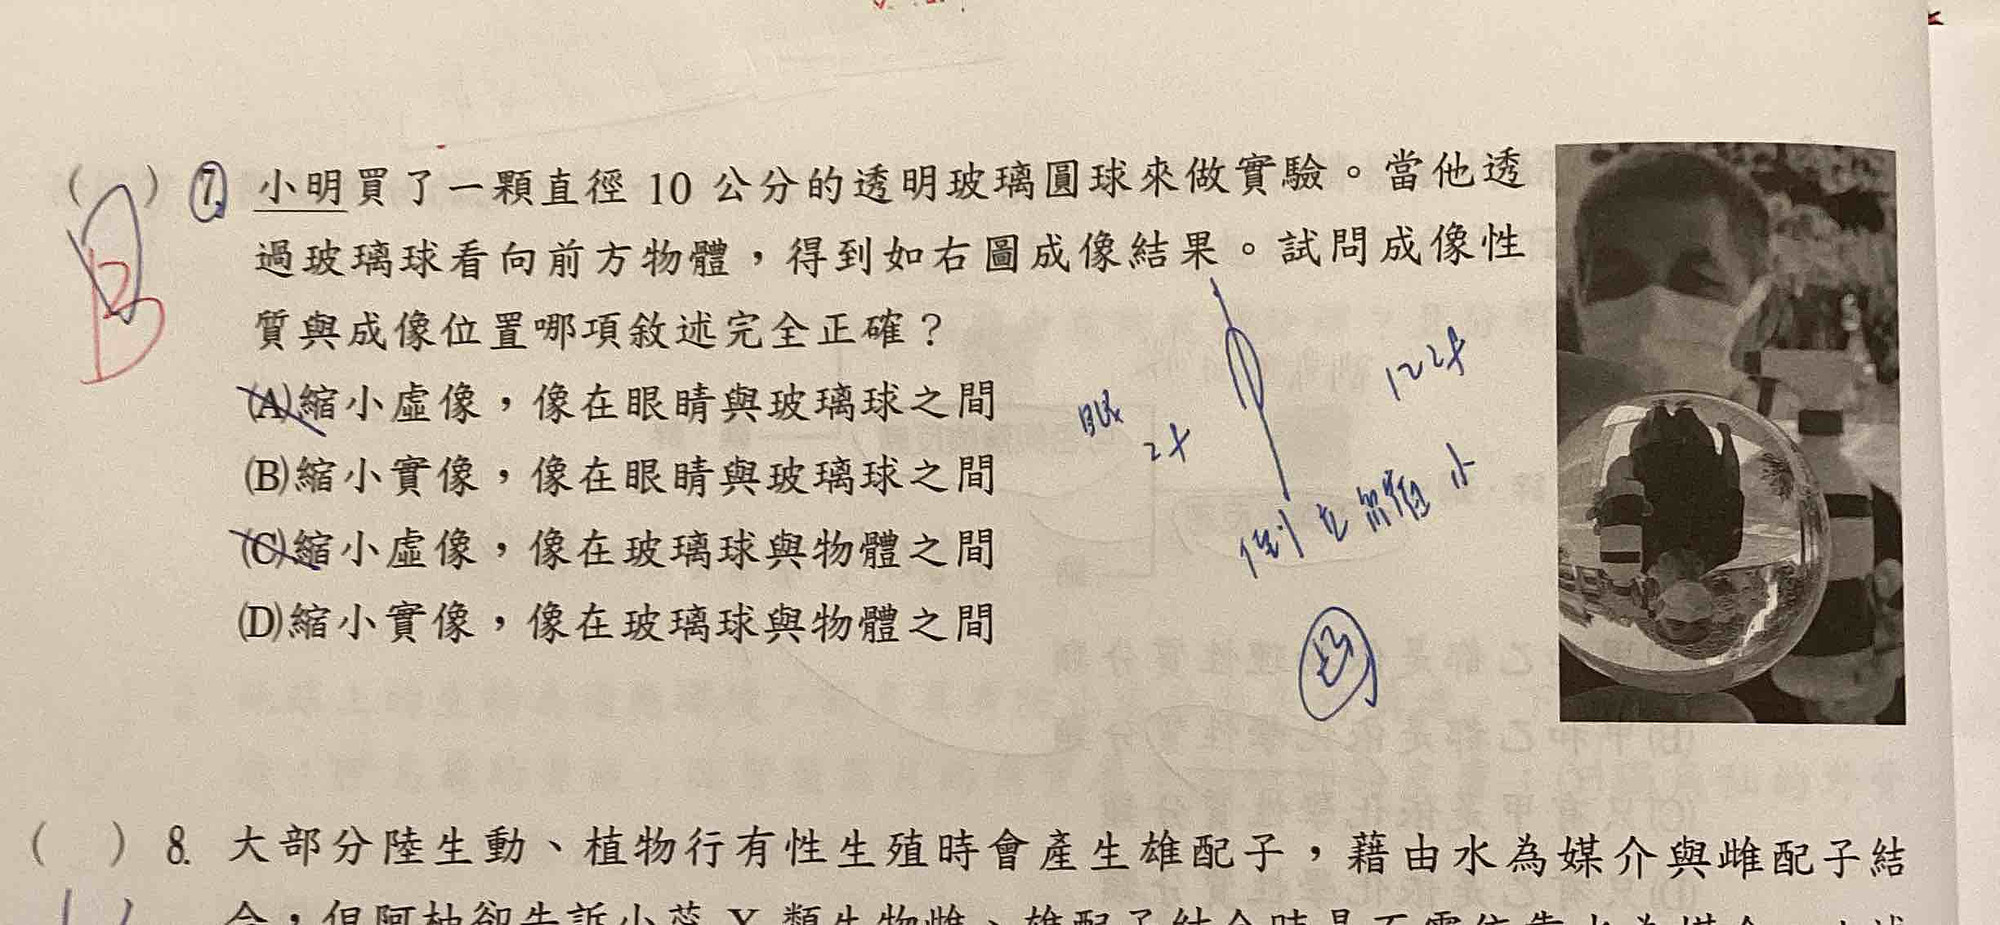 ( ) 7. 小明買了一顆直徑 10 公分的透明玻璃圓球來做實驗。當他透
過玻璃球看向前方物體,得到如右圖成像結果。試問成像性
質與成像位置哪項敘述完全正確?
(A)縮小虛像,像在眼睛與玻璃球之間
(B)縮小實像,像在眼睛與玻璃球之間
(C)縮小虛像,像在玻璃球與物體之間
(D)縮小實像,像在玻璃球與物體之間
B
眼
2f
倒立縮小
( ) 8. 大部分陸生動、植物行有性生殖時會產生雄配子,藉由水為媒介與雌配子結